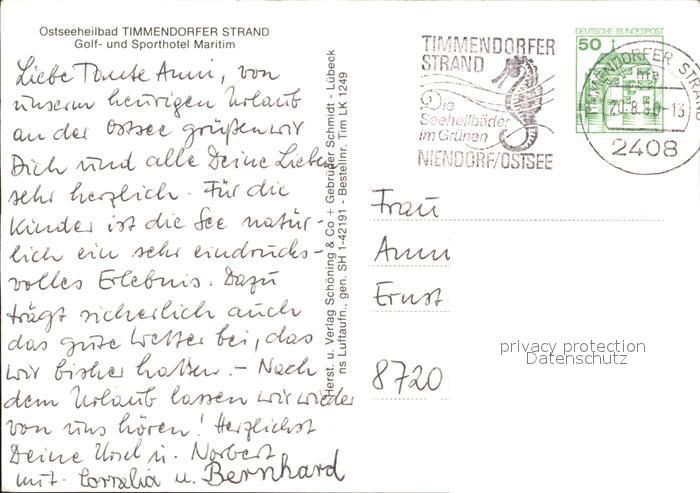 Ostseeheilbad TIMMENDORFER STRAND
Golf- und Sporthotel Maritim
Liebe Tante Anni, von
unserm heurigen Urlaub
an der Ostsee grüßen wir
Dich und alle Deine Lieben
sehr herzlich. Für die
Kinder ist die See natür-
lich ein sehr eindrucks-
volles Erlebnis. Dazu
trägt sicherlich auch
das gute Wetter bei, das
wir bisher hatten. – Nach
dem Urlaub lassen wir wieder
von uns hören! Herzlichst
Deine Ursel u. Norbert
mit u. Bernhard
Herst. u. Verlag Schöning & Co + Gebrüder Schmidt - Lübeck
ns Luftaufn., gen. SH 1-42191 - Bestellnr. Tim LK 1249
TIMMENDORFER
STRAND
Die
Seeheilbäder
im Grünen
NIENDORF/OSTSEE
DEUTSCHE BUNDESPOST
50
TIMMENDORFER STRAND
ma
20.8.80-13
2408
Frau
Anni
Ernst
8720
privacy protection
Datenschutz